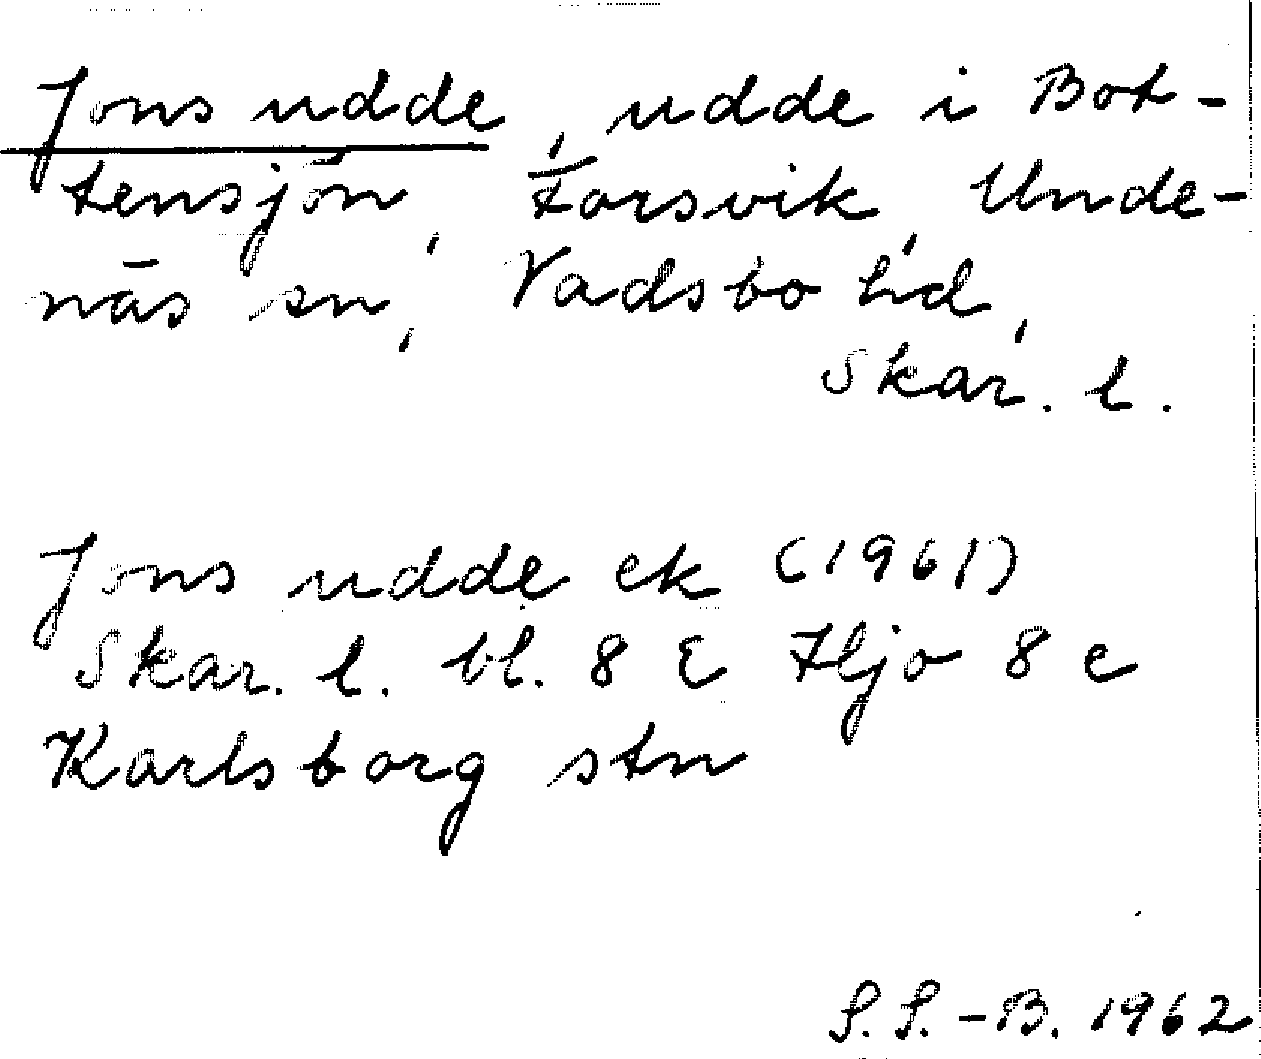 Jons udde, udde i Bot-
tensjön, Forsvik, Unde-
näs sn, Vadsbo hd,
Skar. l.
Jons udde ek (1961)
Skar. l. bl. 8 E Hjo 8 c
Karlsborg stn
S.S.-B. 1962